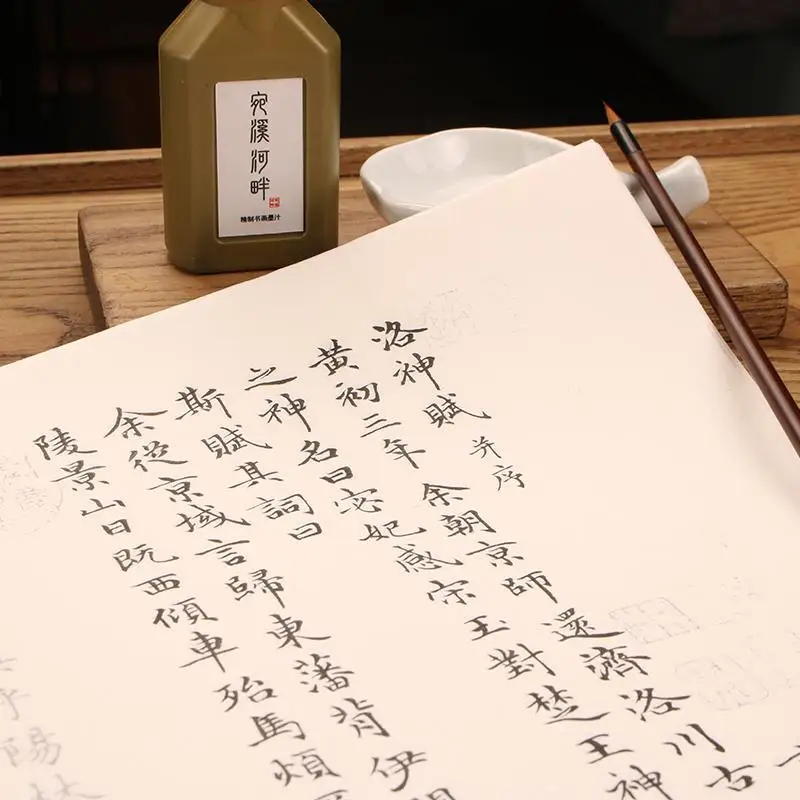 宛溪河畔
精制书画墨汁
洛神賦 并序
黄初三年余朝京師還濟洛川古
之神名曰宓妃感宗玉對楚王神
斯賦其詞曰
余從京域言歸東藩背伊
陵景山日既西傾車殆馬煩
乎陽林